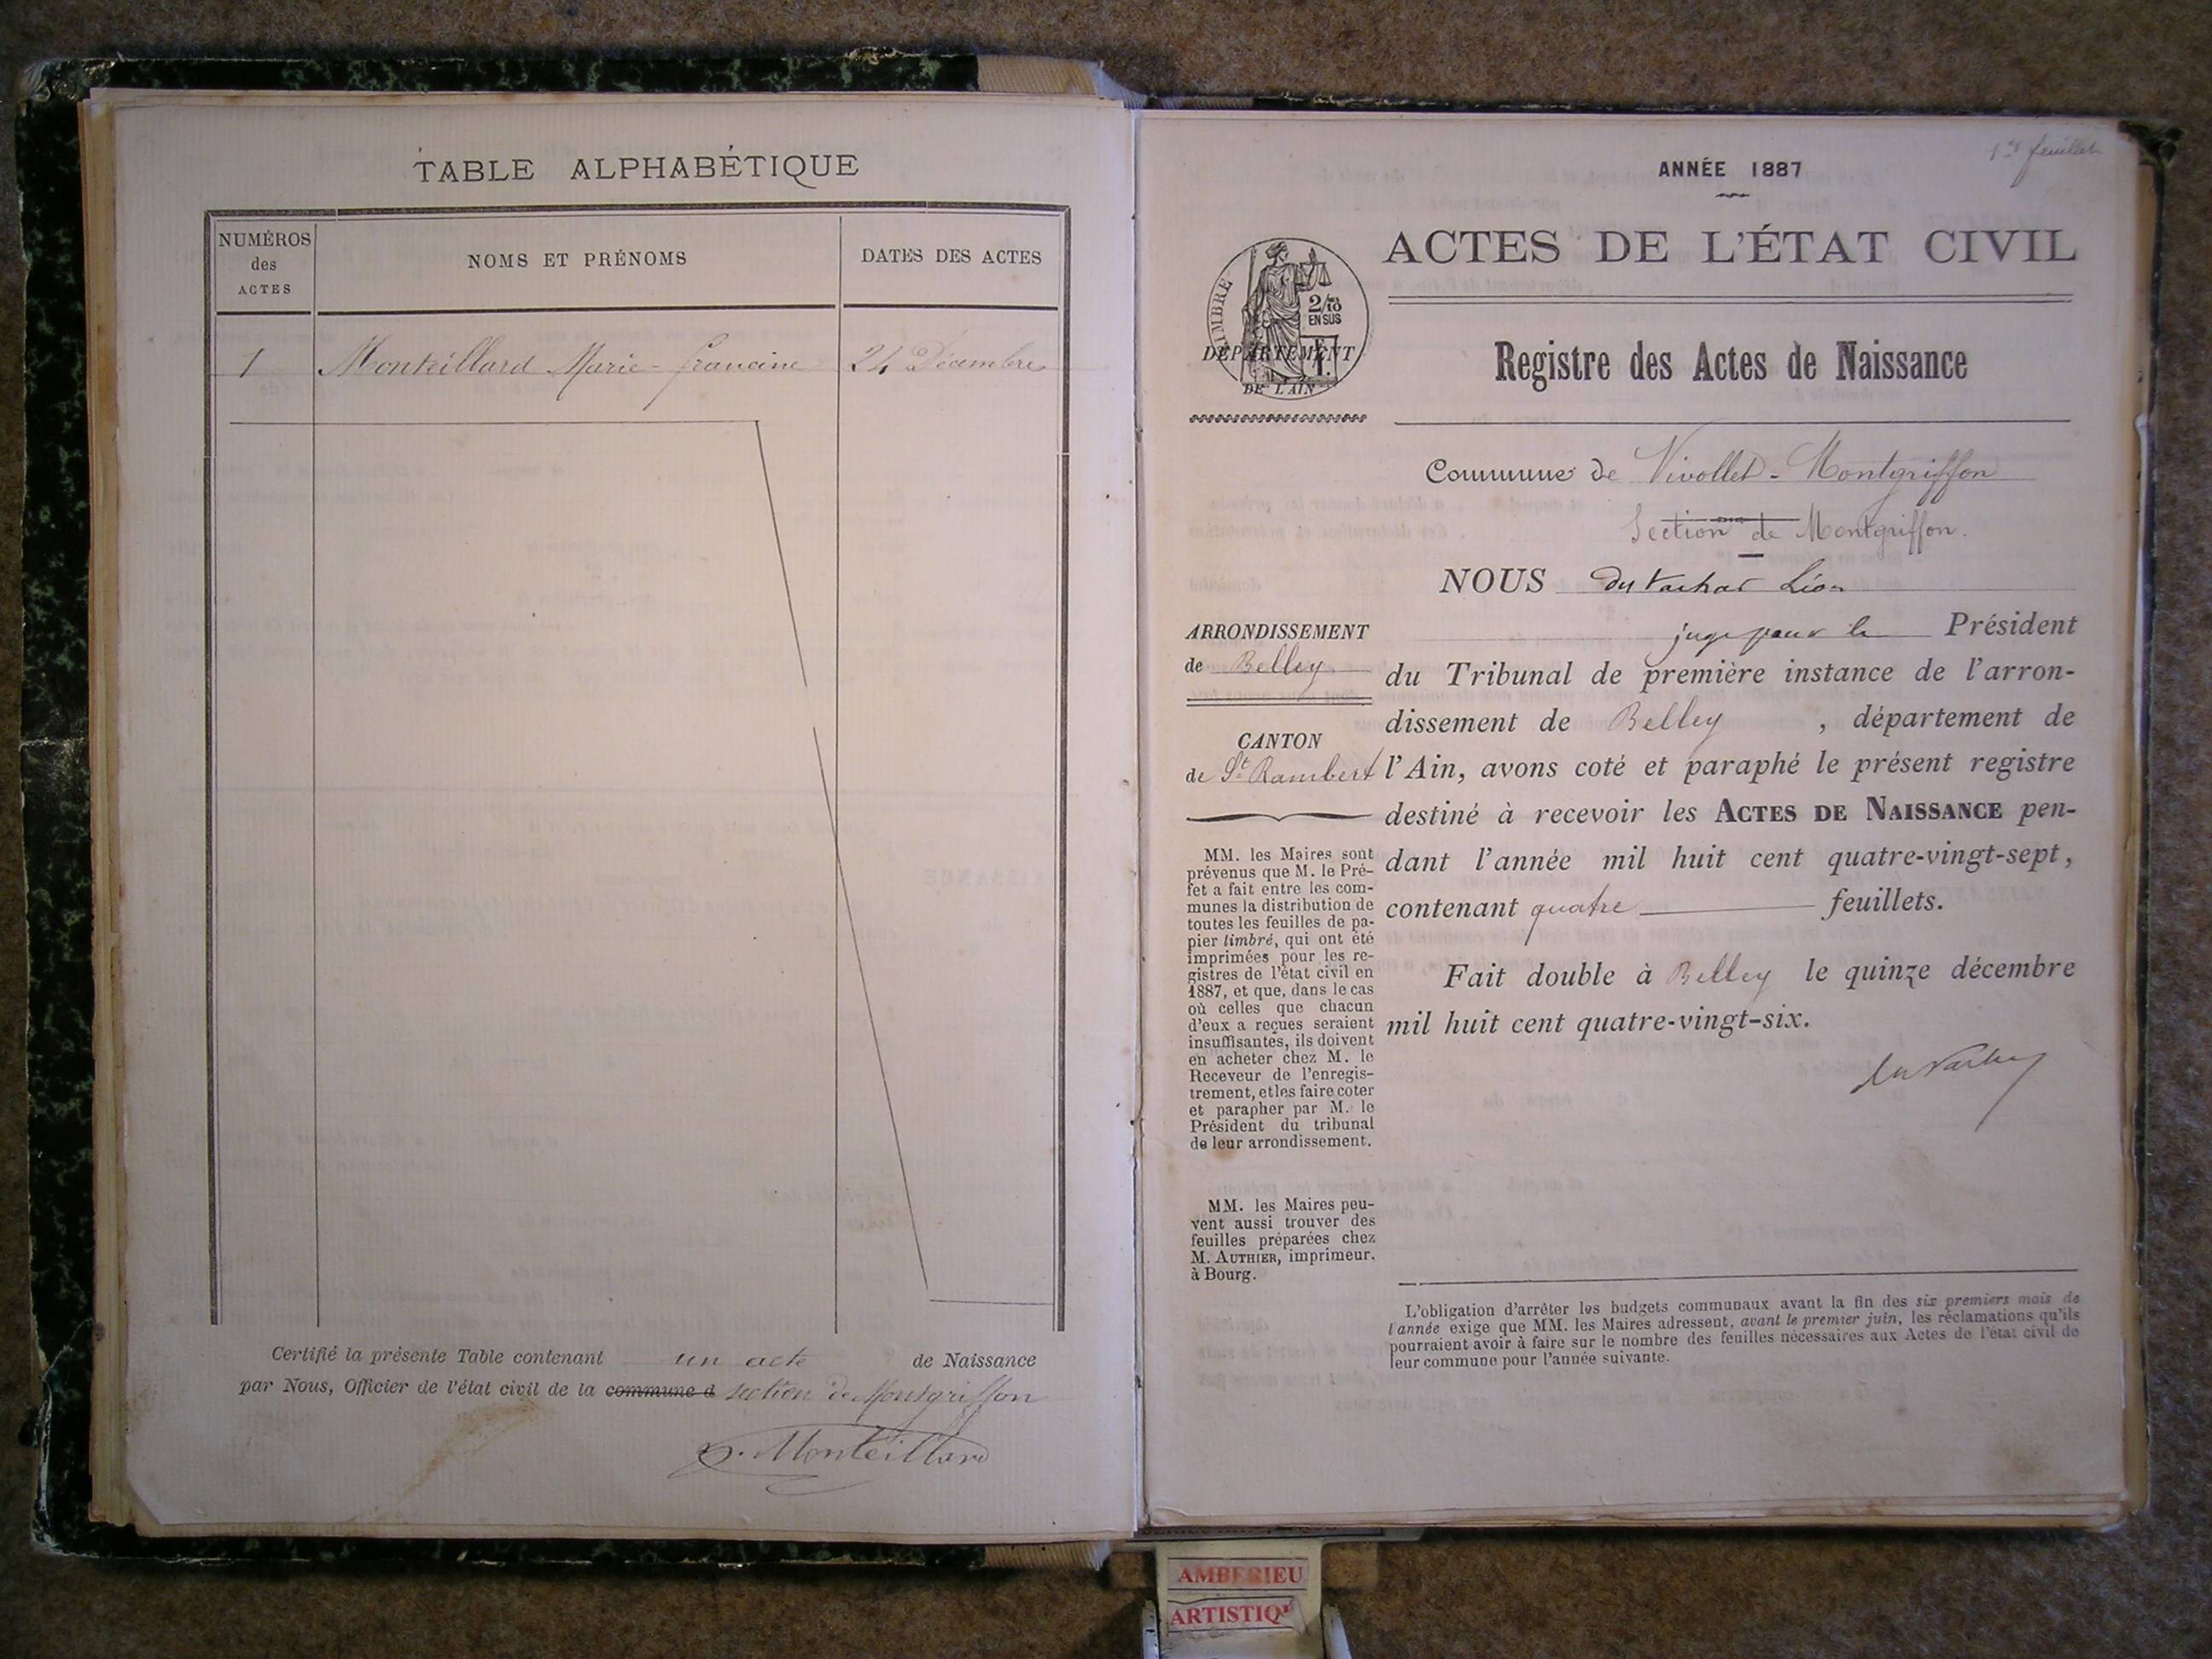 TABLE ALPHABÉTIQUE
NUMÉROS
des
ACTES
NOMS ET PRÉNOMS
DATES DES ACTES
1 Monteillard Marie-Francine 24 Décembre
Certifié la présente Table contenant un acte de Naissance
par Nous, Officier de l'état civil de la commune d section de Montgriffon
Monteillard
1er feuillet
ANNÉE 1887
ACTES DE L'ÉTAT CIVIL
TIMBRE
2/10
EN SUS
DÉPARTEMENT
DE L'AIN
Registre des Actes de Naissance
Commune de Nivollet-Montgriffon
Section de Montgriffon.
NOUS Léon
juge pour le Président
du Tribunal de première instance de l'arron-
dissement de Belley, département de
l'Ain, avons coté et paraphé le présent registre
destiné à recevoir les ACTES DE NAISSANCE pen-
dant l'année mil huit cent quatre-vingt-sept,
contenant quatre feuillets.
Fait double à Belley le quinze décembre
mil huit cent quatre-vingt-six.
ARRONDISSEMENT
de Belley
CANTON
de St Rambert
MM. les Maires sont
prévenus que M. le Pré-
fet a fait entre les com-
munes la distribution de
toutes les feuilles de pa-
pier timbré, qui ont été
imprimées pour les re-
gistres de l'état civil en
1887, et que, dans le cas
où celles que chacun
d'eux a reçues seraient
insuffisantes, ils doivent
en acheter chez M. le
Receveur de l'enregis-
trement, et les faire coter
et parapher par M. le
Président du tribunal
de leur arrondissement.
MM. les Maires peu-
vent aussi trouver des
feuilles préparées chez
M. AUTHIER, imprimeur.
à Bourg.
L'obligation d'arrêter les budgets communaux avant la fin des six premiers mois de
l'année exige que MM. les Maires adressent, avant le premier juin, les réclamations qu'ils
pourraient avoir à faire sur le nombre des feuilles nécessaires aux Actes de l'état civil de
leur commune pour l'année suivante.
AMBERIEU
ARTISTIQ